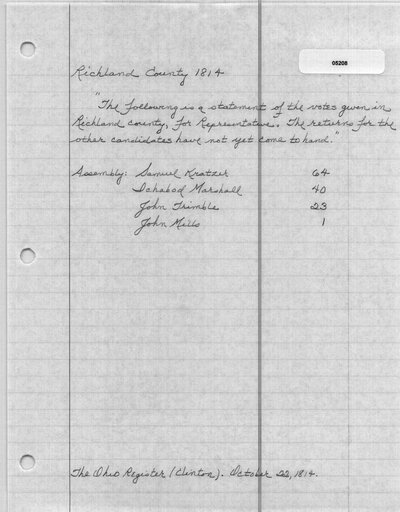 05208
Richland County 1814
"The following is a statement of the votes given in
Richland county, for Representative. The returns for the
other candidates have not yet come to hand."
Assembly: Samuel Kratzer 64
Ichabod Marshall 40
John Trimble 23
John Mills 1
The Ohio Register (Clinton). October 22, 1814.